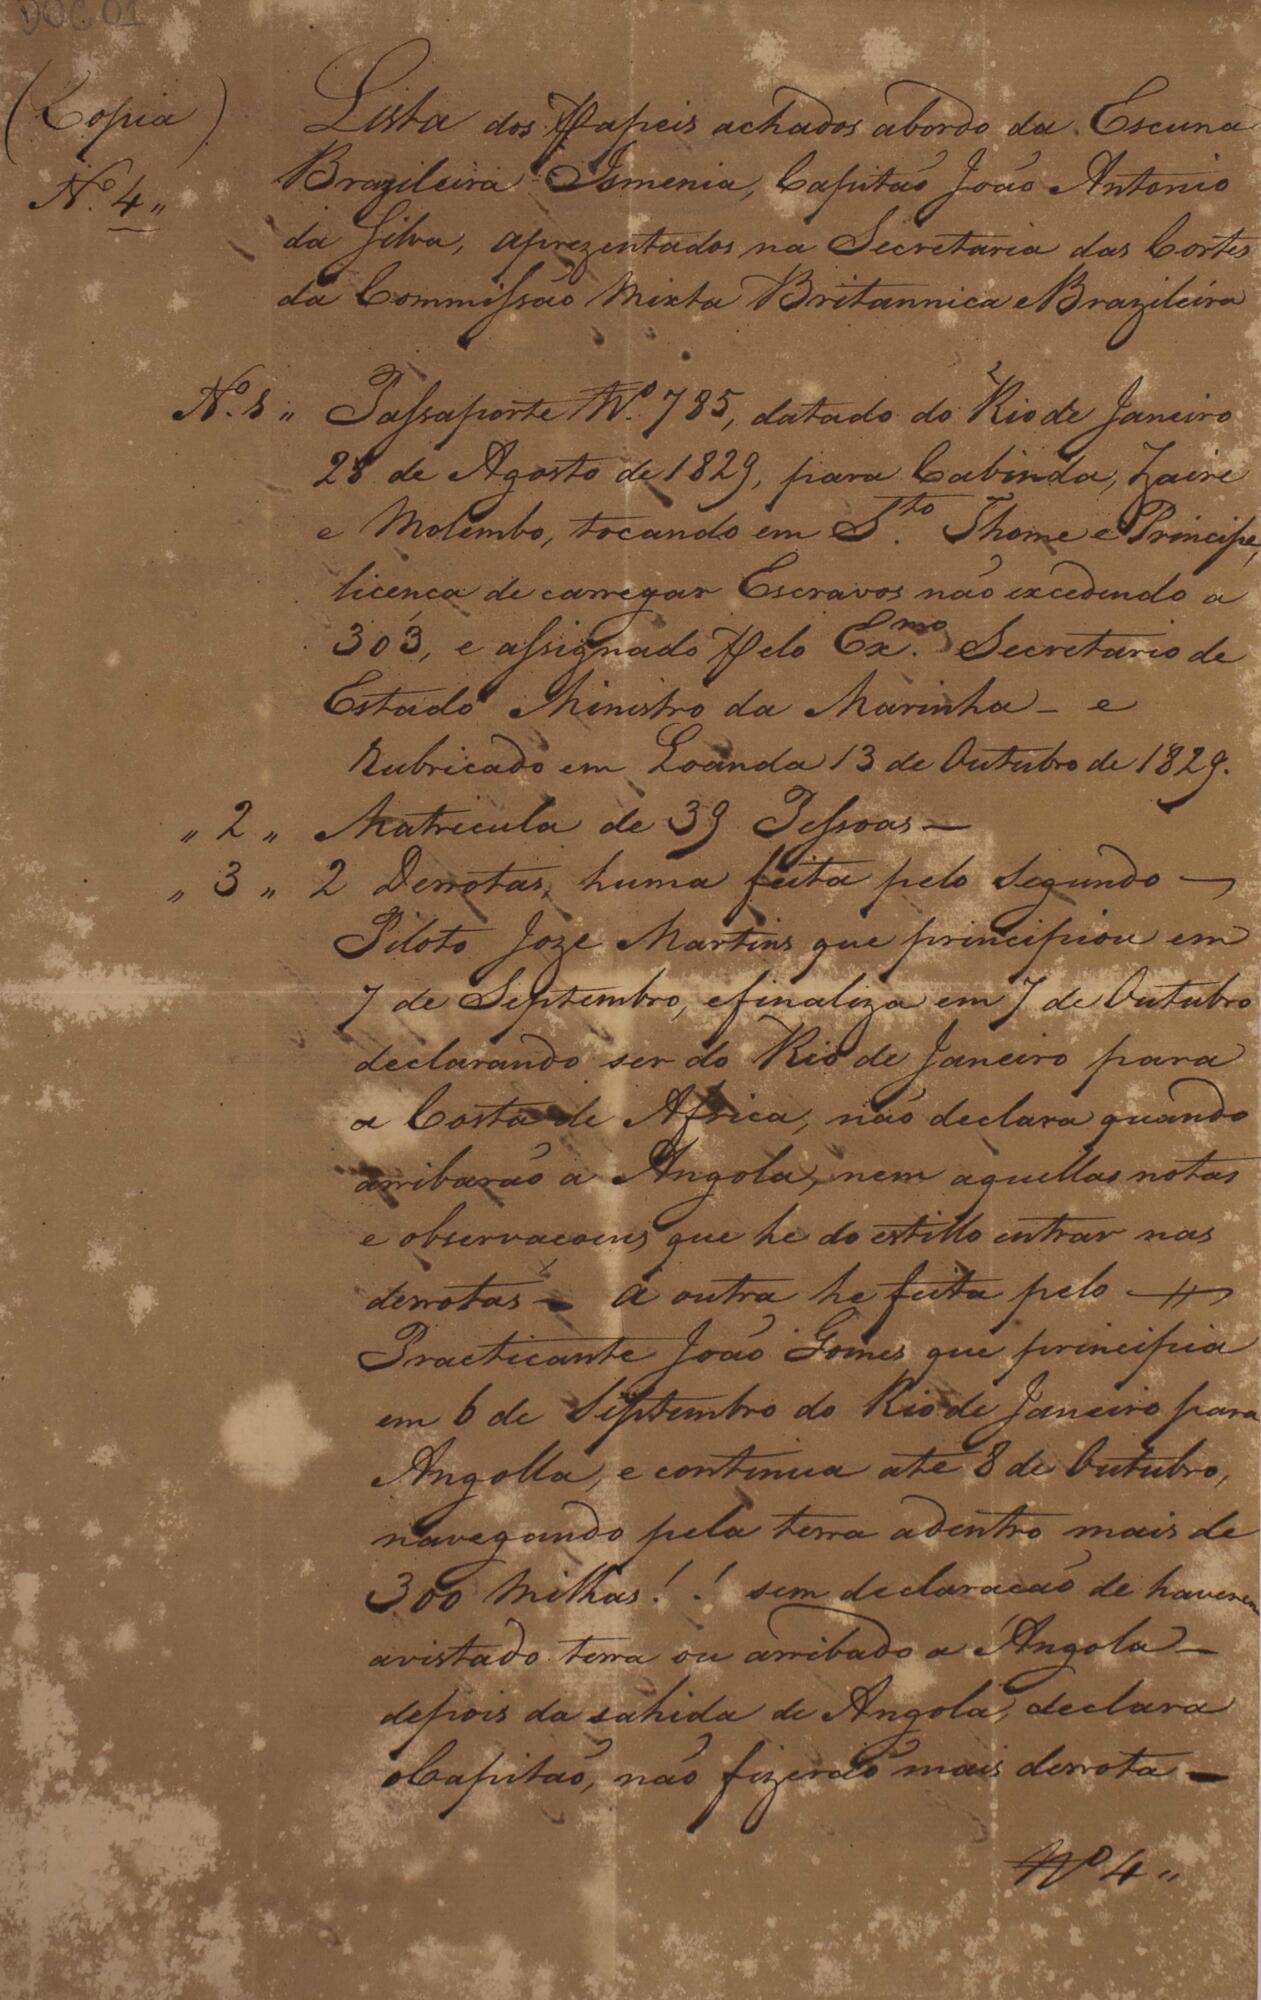 DOC 01
(Copia)
Nº. 4 „
Lista dos Papeis achados abordo da Escuna
Brazileira Ismenia, Capitaõ Joaõ Antonio
da Silva, aprezentados na Secretaria das Cortes
da Commissaõ Mixta Britannica e Brazileira
Nº. 1 „ Passaporte Nº. 785, datado do Rio de Janeiro
28 de Agosto de 1829, para Cabinda, Zaire
e Molembo, tocando em Sto. Thome e Principe,
licenca de carregar Escravos naõ excedendo a
303, e assignado pelo Exmo. Secretario de
Estado Ministro da Marinha – e
Rubricado em Loanda 13 de Outubro de 1829.
„ 2 „ Matricula de 39 Pessoas –
„ 3 „ 2 Derrotas, huma feita pelo Segundo –
Piloto Joze Martins que principiou em
7 de Septembro, e finaliza em 7 de Outubro
declarando ser do Rio de Janeiro para
a Costa de Africa, naõ declara quando
arribaraõ a Angola, nem aquellas notas
e observacoens que he do estillo entrar nas
derrotas – A outra he feita pelo –
Practicante Joaõ Gomes que principia
em 6 de Septembro do Rio de Janeiro para
Angolla, e continua até 8 de Outubro,
navegando pela terra adentro mais de
300 Milhas!! sem declaracaõ de haverem
avistado terra ou arribado a Angola –
depois da sahida de Angola, declara
o Capitaõ, naõ fizeraõ mais derrota –
Nº 4 „